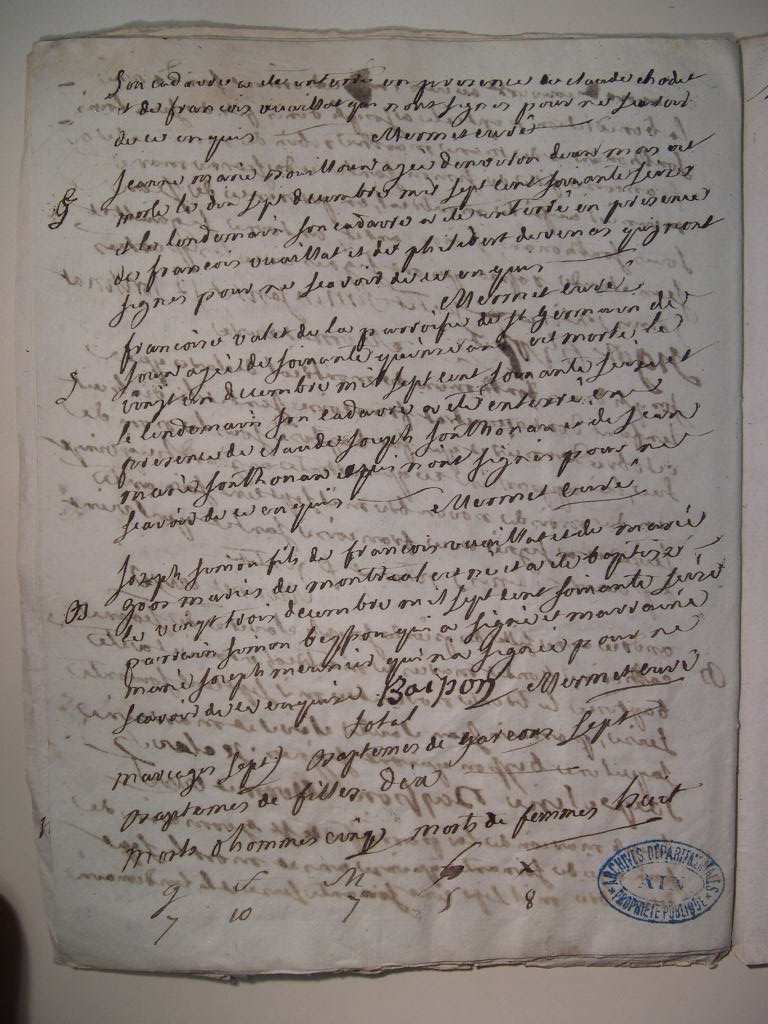 Son cadavre a ete enterré en presence de claude chodet
et de françois vuaillat qui n'ont signes pour ne scavoir
de ce enquis Mermet curé
Jeanne marie agée d'environ deux mois est
morte le dix sept decembre mil sept cent soixante seize
et le lendemain son cadavre a ete enterré en presence
de françois vuaillat et de philibert devenas qui n'ont
signes pour ne scavoir de ce enquis
Mermet curé
francoise valet de la parroisse de st germain de
Joux agée de soixante quinze ans est morte le
vingt un decembre mil sept cent soixante seize et
le lendemain son cadavre a ete enterré en
presence de claude Joseph Sonthonax et de Jean
marie Sonthonax qui n'ont signes pour ne
scavoir de ce enquis Mermet curé
B
Joseph simon fils de francois vuaillat et de marie
gros maries de montreal est ne et a ete baptize
le vingt trois decembre mil sept cent soixante seize
parrain simon qui a signé et marraine
marie Joseph meunier qui n'a signée pour ne
scavoir de ce enquise Mermet curé
total
mariages sept Baptemes de garcons sept
Baptemes de filles dix
morts d'hommes cinq morts de femmes huit
g f M h x
7 10 7 5 8
ARCHIVES DÉPARTEMENTALES
AIN
PROPRIÉTÉ PUBLIQUE